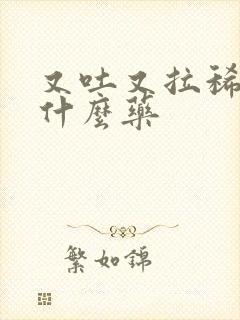 又吐又拉稀
什麼藥
繁如錦